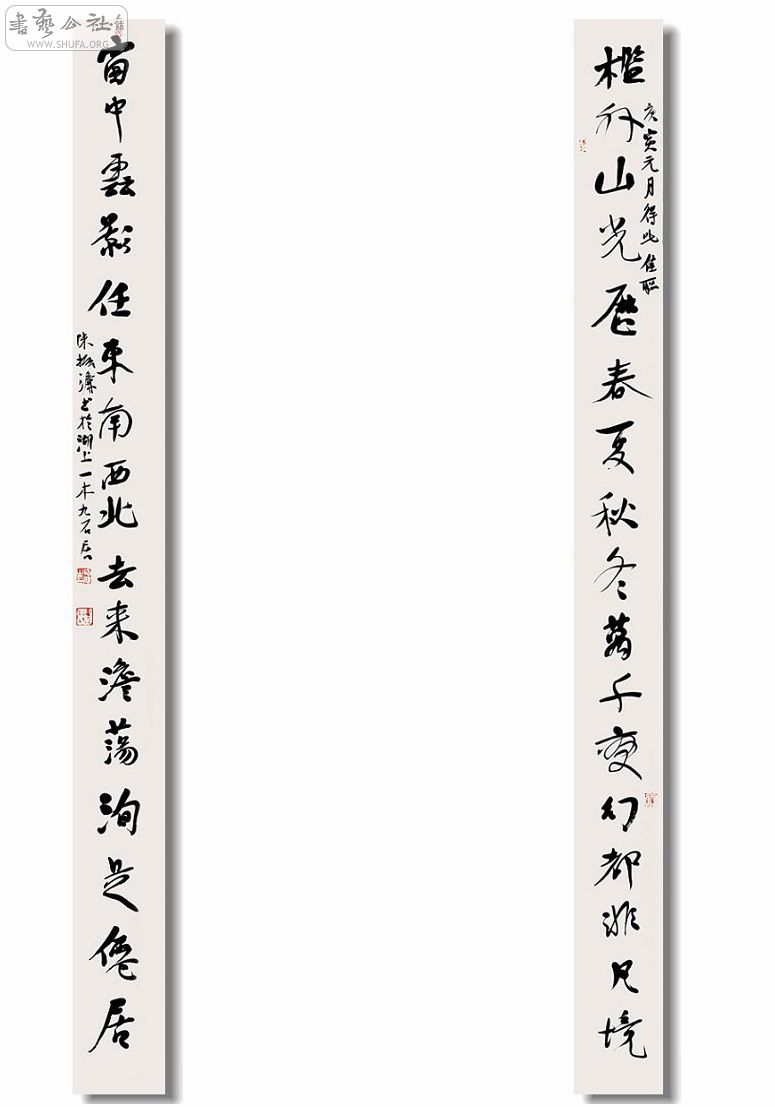 檻外山光歷春夏秋冬萬千變幻都非凡境
庚寅元月得此佳联
窗中雲影任東南西北去来澹蕩洵是僊居
陳振濂書於湖上一木九石居
書藝公社
WWW.SHUFA.ORG